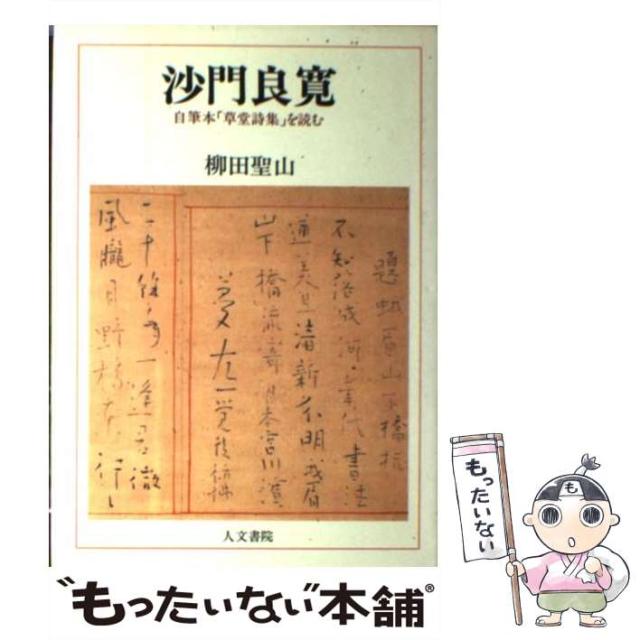 沙門良寛
自筆本「草堂詩集」を読む
柳田聖山
題蛾眉山下橋杭
不知落成何年代書法
遒美且清新分明我眉
山下橋流寄日本宮川濱
夢左一覚後彷彿
二十餘年一逢君微
風朧月野橋東行々
人文書院
も
もったいない
"もったいない"本舗®